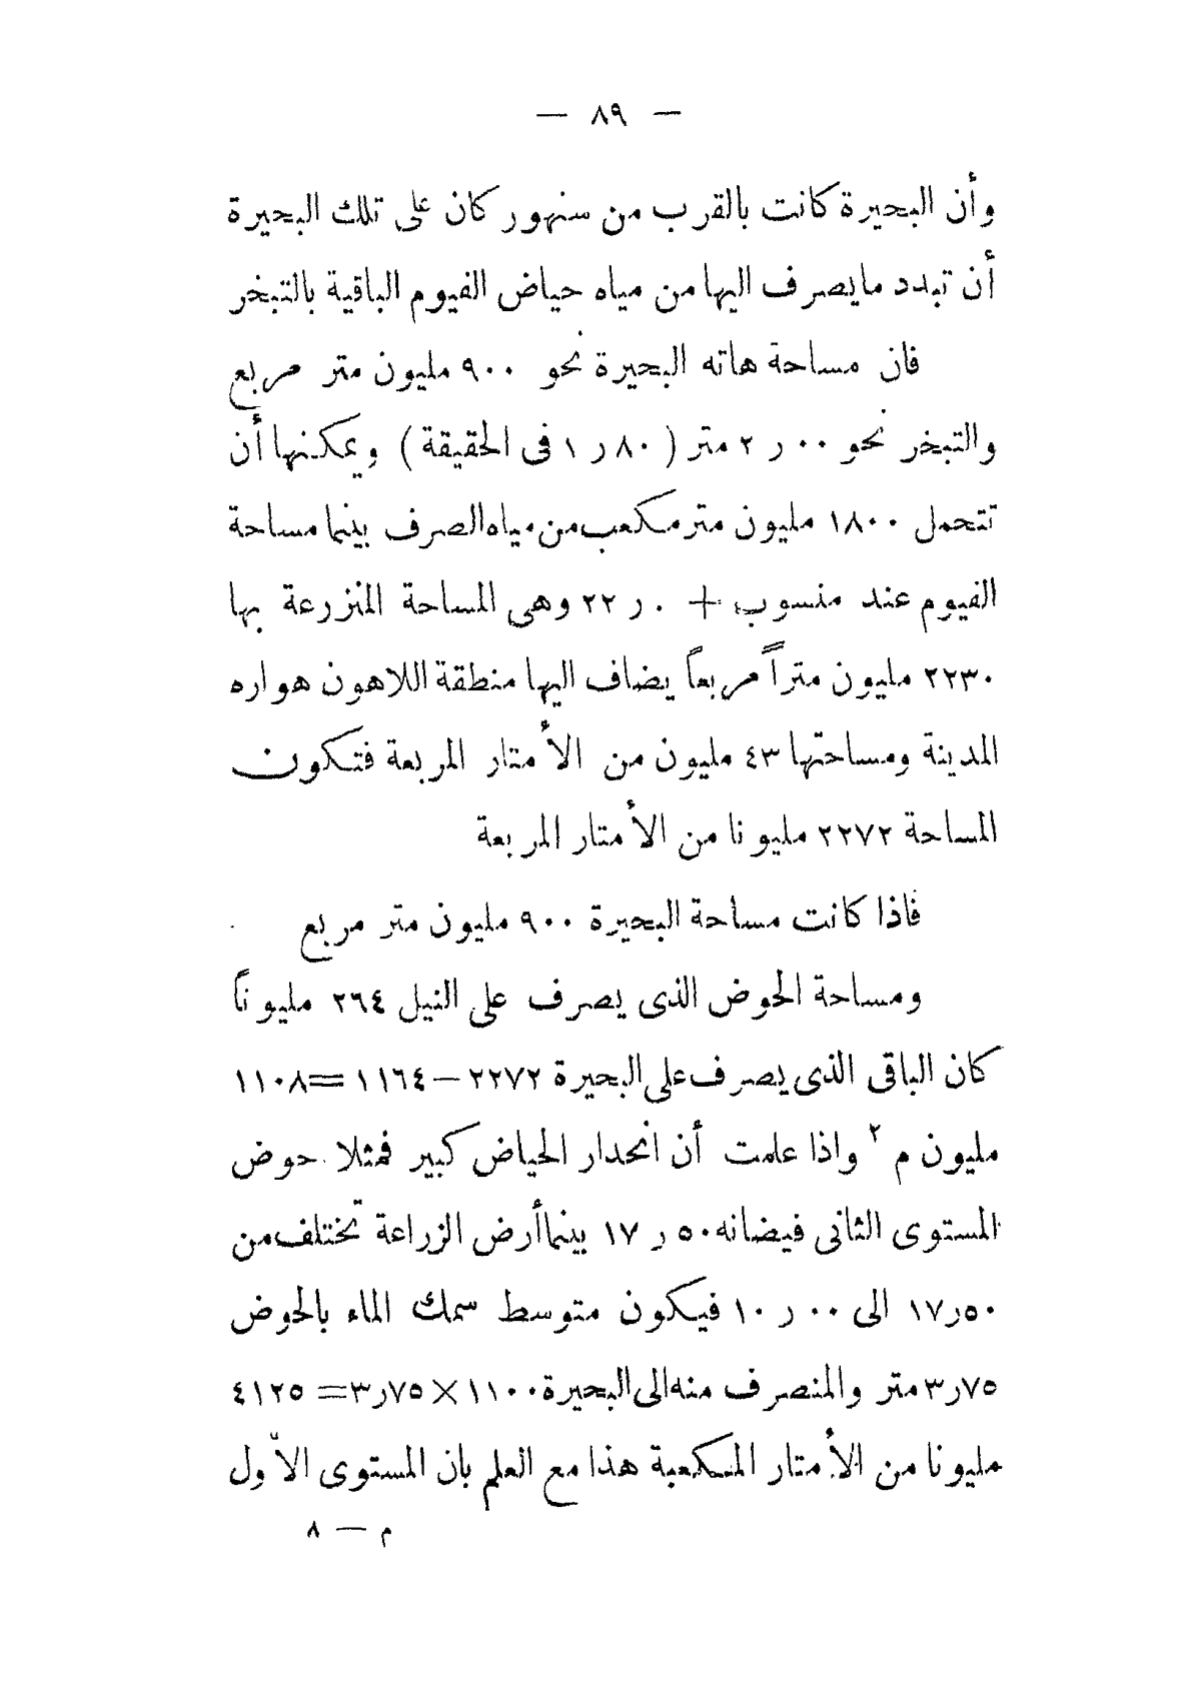 — ٨٩ —
وأن البحيرة كانت بالقرب من سنهور كان على تلك البحيرة
أن تبدد مايصرف اليها من مياه حياض الفيوم الباقية بالتبخر
فان مساحة هاته البحيرة نحو ٩٠٠ مليون متر مربع
والتبخر نحو ٠٠ ر ٢ متر ( ٨٠ ر ١ فى الحقيقة ) ويمكنها أن
تتحمل ١٨٠٠ مليون متر مكعب من مياه الصرف بينما مساحة
الفيوم عند منسوب + ٠ ر ٢٢ وهى المساحة المنزرعة بها
٢٢٣٠ مليون متراً مربعاً يضاف اليها منطقة اللاهون هواره
المدينة ومساحتها ٤٣ مليون من الأمتار المربعة فتكون
المساحة ٢٢٧٢ مليونا من الأمتار المربعة
فاذا كانت مساحة البحيرة ٩٠٠ مليون متر مربع
ومساحة الحوض الذى يصرف على النيل ٢٦٤ مليوناً
كان الباقى الذى يصرف على البحيرة ٢٢٧٢ – ١١٦٤ = ١١٠٨
مليون م ٢ واذا علمت أن انحدار الحياض كبير فمثلا حوض
المستوى الثانى فيضانه ٥٠ ر ١٧ بينما أرض الزراعة تختلف من
٥٠ر١٧ الى ٠٠ ر ١٠ فيكون متوسط سمك الماء بالحوض
٧٥ر٣ متر والمنصرف منه الى البحيرة ١١٠٠ × ٧٥ر٣ = ٤١٢٥
مليونا من الأمتار المكعبة هذا مع العلم بان المستوى الأول
م — ٨